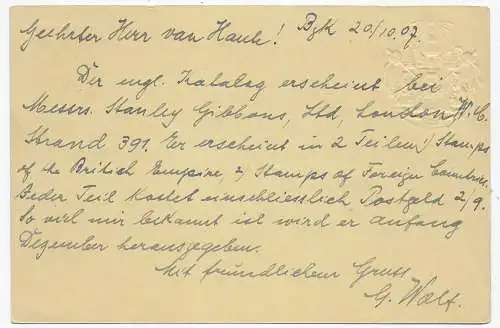 Geehrter Herr van Haute! Bgk 20/10.07.
Der engl. Katalog erscheint bei
Messrs. Stanley Gibbons, Ltd, London W.C.
Strand 391. Er erscheint in 2 Teilen 1) Stamps
of the British Empire 2) Stamps of Foreign Countries.
Jeder Teil kostet einschliesslich Postgeld 2/9.
So viel mir bekannt ist wird er anfang
Dezember herausgegeben.
Mit freundlichem Gruss
G. Wolf.